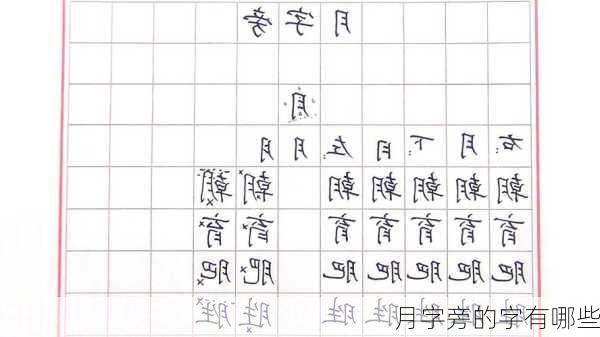 月字旁
月
右: 月 下: 月 左: 月 月
朝 朝 朝 朝 朝 朝 朝
育 育 育 育 育 育 育
肥 肥 肥 肥 肥 肥 肥
胜 胜 胜 胜 胜 胜 胜
月字旁的字有哪些